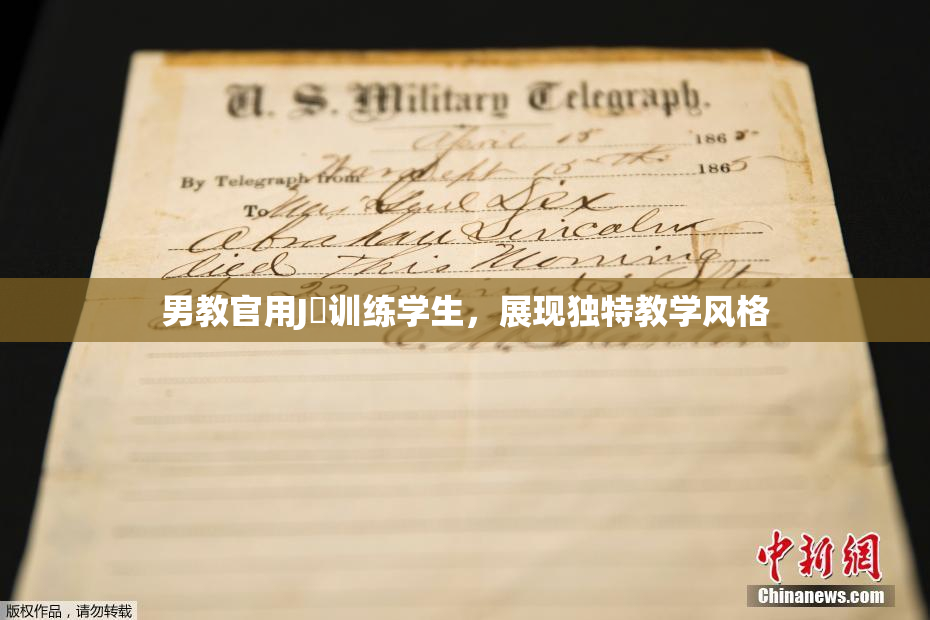 U. S. Military Telegraph.
April 15 1865
By Telegraph from War Dept 15th 1865
To Maj Genl Dix
Abraham Lincoln
died This Morning
at 22 minutes after
男教官用J�训练学生，展现独特教学风格
E. M. Stanton
中新網
Chinanews.com
版权作品，请勿转载